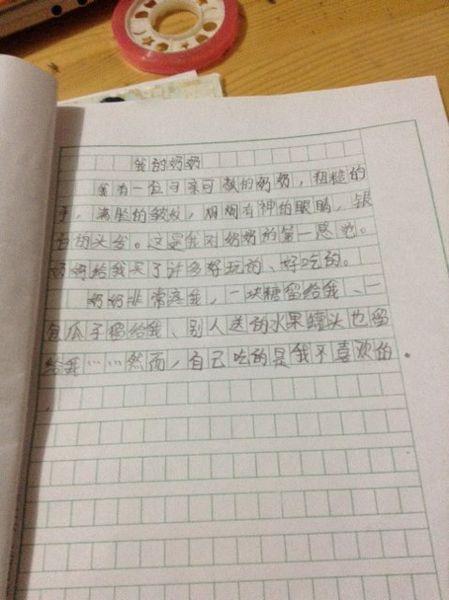 我的奶奶
我有一位可亲可敬的奶奶，粗糙的
手，满脸的皱纹，炯炯有神的眼睛，银
白的头发。这是我对奶奶的第一感觉。
奶奶给我买了许多好玩的、好吃的。
奶奶非常疼我，一块糖留给我、一
包瓜子留给我、别人送的水果罐头也留
给我……然而，自己吃的是我不喜欢的。